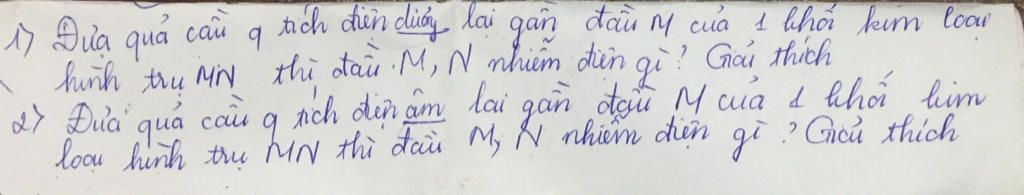 1) Đưa quả cầu q tích điện dương lại gần đầu M của 1 khối kim loại
hình trụ MN thì đầu M, N nhiễm điện gì? Giải thích
2) Đưa quả cầu q tích điện âm lại gần đầu M của 1 khối kim
loại hình trụ MN thì đầu M, N nhiễm điện gì? Giải thích